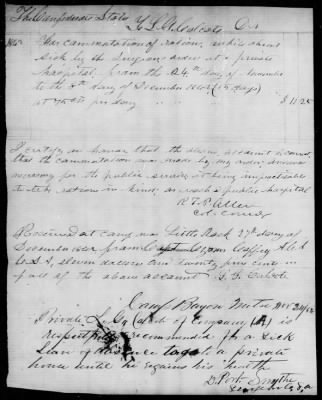 The Confederate States
To T. F. Culcote Dr
1862
For commutation of rations, while absent
sick by the Surgeons order at a private
hospital, from the 24th day of November
to the 8th day of December 1862 (15 days)
at 75 cts per day " " $11.25
I certify on honor that the above account is correct
that the commutation was made by my order, & was
necessary for the public service, it being impracticable
to take rations in kind, or reach a public hospital
R. T. P. Allen
Col. Comdg
Received at camp near Little Rock 27th day of
December 1862 from Capt
C.S.A., eleven dollars and twenty five cents in
full of the above account
T. F. Culcote
Camp Bayou Metre Nov 24/62
Private of Company (A) is
respectfully recommended for a Sick
leave of absence to go to a private
house until he regains his health
D. Port Smythe
Surgeon